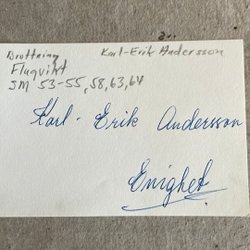 Brottning Karl-Erik Andersson
Flugvikt
SM 53-55, 58, 63, 64
Karl-Erik Andersson
Enighet